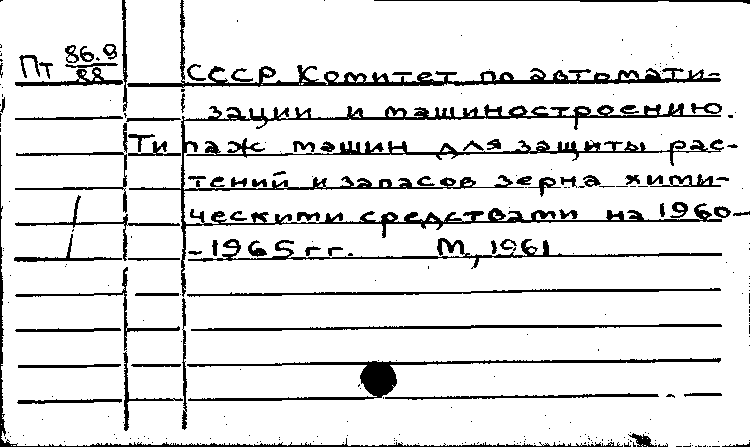 Пт 86.9
88
СССР. Комитет по автомати-
зации и машиностроению.
Типаж машин для защиты рас-
тений и запасов зерна хими-
ческими средствами на 1960-
-1965 гг. М, 1961.